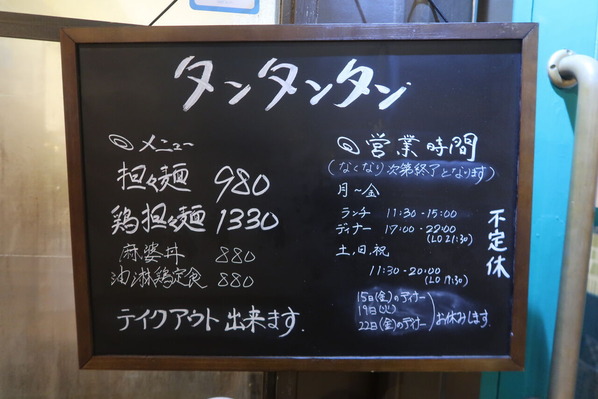 タンタンタン
◎ メニュー
担々麺 980
鶏担々麺 1330
麻婆丼 880
油淋鶏定食 880
テイクアウト出来ます.
◎ 営業時間
(なくなり次第終了となります)
月〜金
ランチ 11:30-15:00
ディナー 17:00-22:00
(LO 21:30)
土,日,祝
11:30-20:00
(LO 19:30)
15日(金)のディナー
19日(火)
22日(金)のディナー
お休みします.
不定休